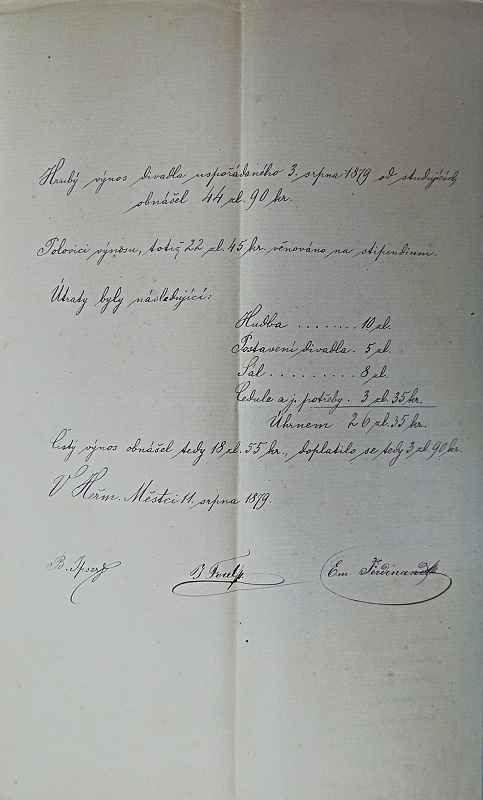 Hrubý výnos divadla uspořádaného 3. srpna 1879 od studujících
obnášel 44 zl. 90 kr.
Polovici výnosu, totiž 22 zl. 45 kr. věnováno na stipendium.
Útraty byly následující:
Hudba ........ 10 zl.
Postavení divadla . 5 zl.
Sál .......... 8 zl.
Cedule a j. potřeby . 3 zl. 35 kr.
Úhrnem 26 zl. 35 kr.
Čistý výnos obnášel tedy 18 zl. 55 kr., doplatilo se tedy 3 zl. 90 kr.
V Heřm. Městci 11. srpna 1879.
B. Em. Ferdinand